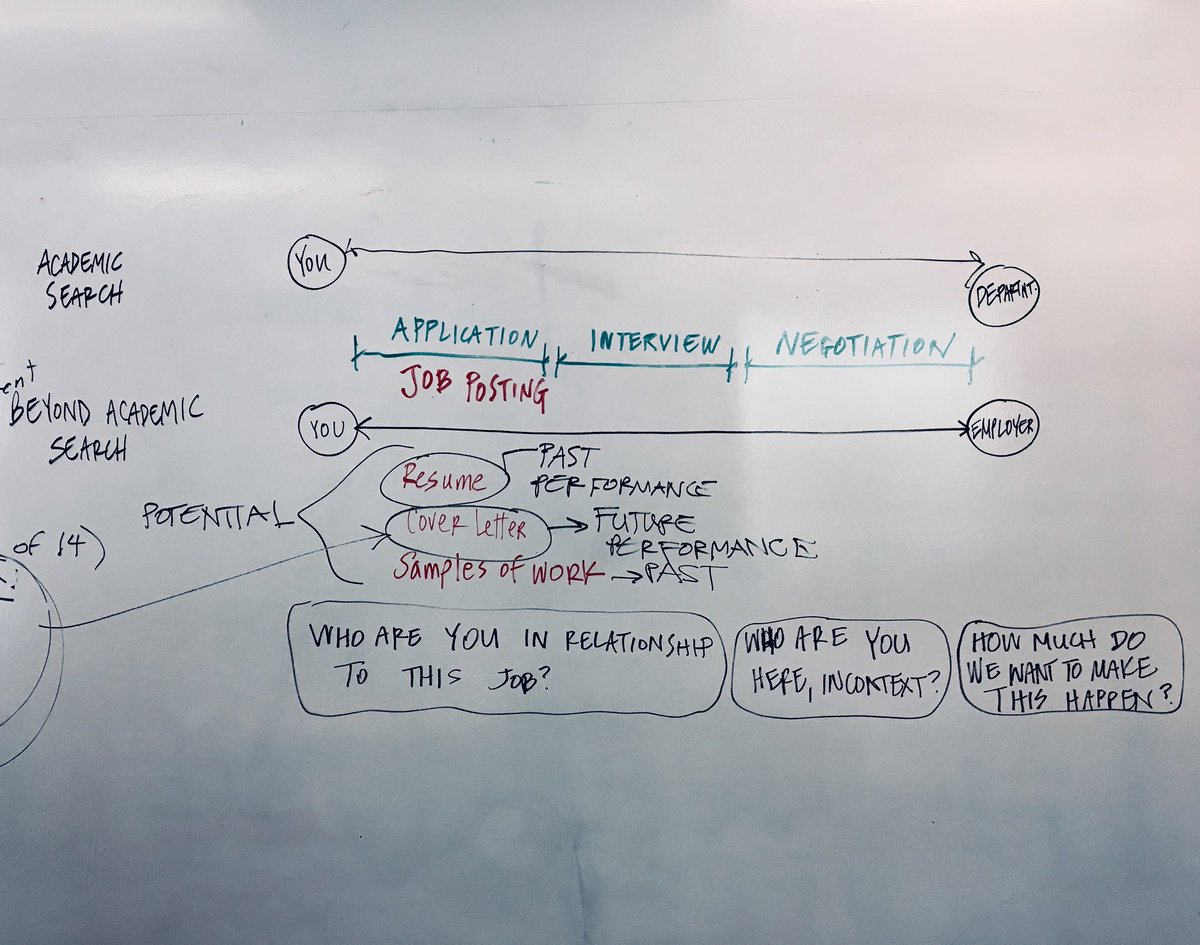 ACADEMIC
SEARCH
YOU
DEPARTMT.
APPLICATION
INTERVIEW
NEGOTIATION
JOB POSTING
ent
BEYOND ACADEMIC
SEARCH
YOU
EMPLOYER
POTENTIAL
Resume
PAST
PERFORMANCE
Cover letter
FUTURE
PERFORMANCE
Samples of WORK
PAST
of 14)
WHO ARE YOU IN RELATIONSHIP
TO THIS JOB?
WHO ARE YOU
HERE, IN CONTEXT?
HOW MUCH DO
WE WANT TO MAKE
THIS HAPPEN?